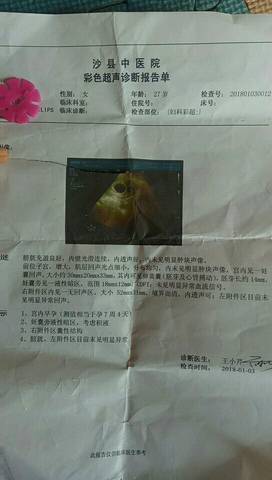 沙县中医院
彩色超声诊断报告单
性别：女 年龄：27岁 检查号：201801030012
临床科室： 住院号： 床号：
LIPS 临床诊断： 检查部位：[妇科彩超:]
声像：
述 膀胱充盈良好，内壁光滑连续，内透声好，内未见明显肿块声像。
前位子宫，增大，肌层回声光点细小，分布均匀，内未见明显肿块声像，宫内见一妊
囊回声，大小约30mm×20mm×33mm,其内可见卵黄囊(胚芽及心管搏动)，胚芽长约14mm,
妊囊旁见一液性暗区，范围18mm×12mm，CDFI：未见明显异常血流信号。
右附件区内见一无回声区，大小 52mm×31mm，境界清，内透声可；左附件区目前未
见明显异常回声。
示 1、宫内早孕（测值相当于孕7周4天）
2、妊囊旁液性暗区，考虑积液
3、右附件区囊性结构
4、膀胱、左附件区目前未见明显异常
诊断医生：王小芹
检查时间：2018-01-03
此报告仅供临床医生参考